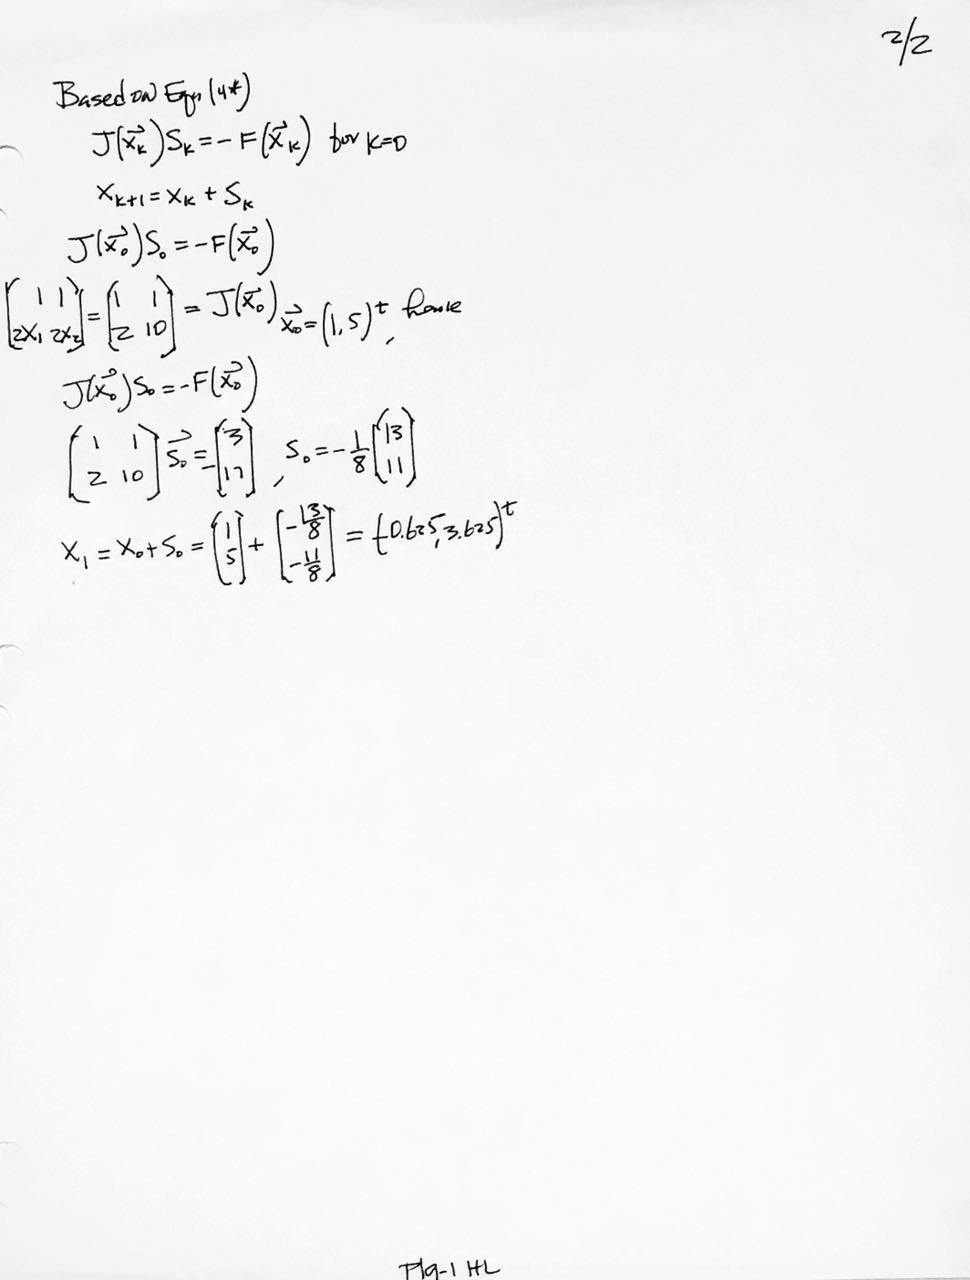 2/2
Based on Eqn (4*)
J(x⃗ₖ)Sₖ = -F(x⃗ₖ) for k=0
xₖ₊₁ = xₖ + Sₖ
J(x⃗₀)S₀ = -F(x⃗₀)
[1 1; 2x₁ 2x₂] = [1 1; 2 10] = J(x⃗₀) x⃗₀ = (1, 5)ᵗ, hence
J(x⃗₀)S₀ = -F(x⃗₀)
[1 1; 2 10] S⃗₀ = -[3; 17], S₀ = -1/8 [13; 11]
x₁ = x₀ + S₀ = [1; 5] + [-13/8; -11/8] = (-0.625, 3.625)ᵗ